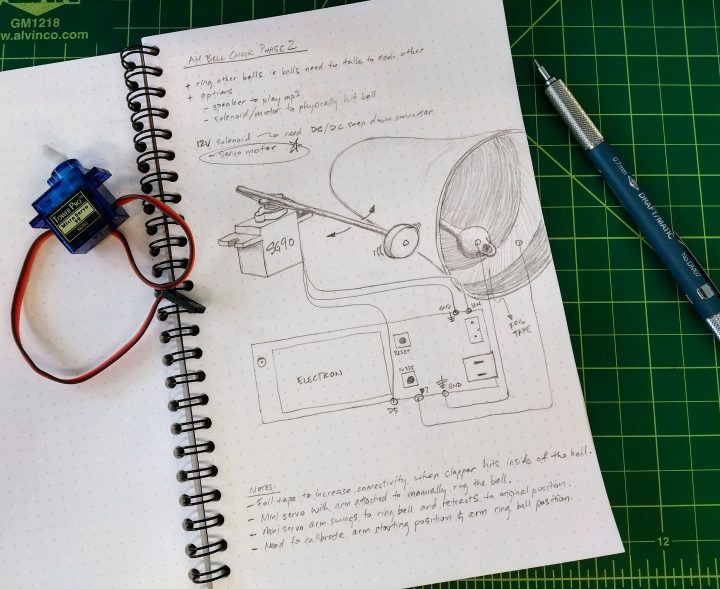 GM1218
www.alvinco.com
AH BELL CHOIR PHASE 2
+ ring other bells ie bells need to talk to each other
+ options
- speaker to play mp3
- solenoid/motor to physically hit bell
12V solenoid → need DC/DC step down converter
- servo motor
TOWER PRO
Micro Servo
9g
SG90
SG90
GND
VIN
FOIL
TAPE
RESET
MODE
ELECTRON
GND
D7
D5
0.7mm
DRAFT/MATIC
No.DM07
NOTES:
- Foil tape to increase conectivity when clapper hits inside of the bell.
- Mini servo with arm attached to manually ring the bell.
- Mini servo arm swings to ring bell and retracts to original position.
- Need to calibrate arm starting position & arm ring bell position.
12